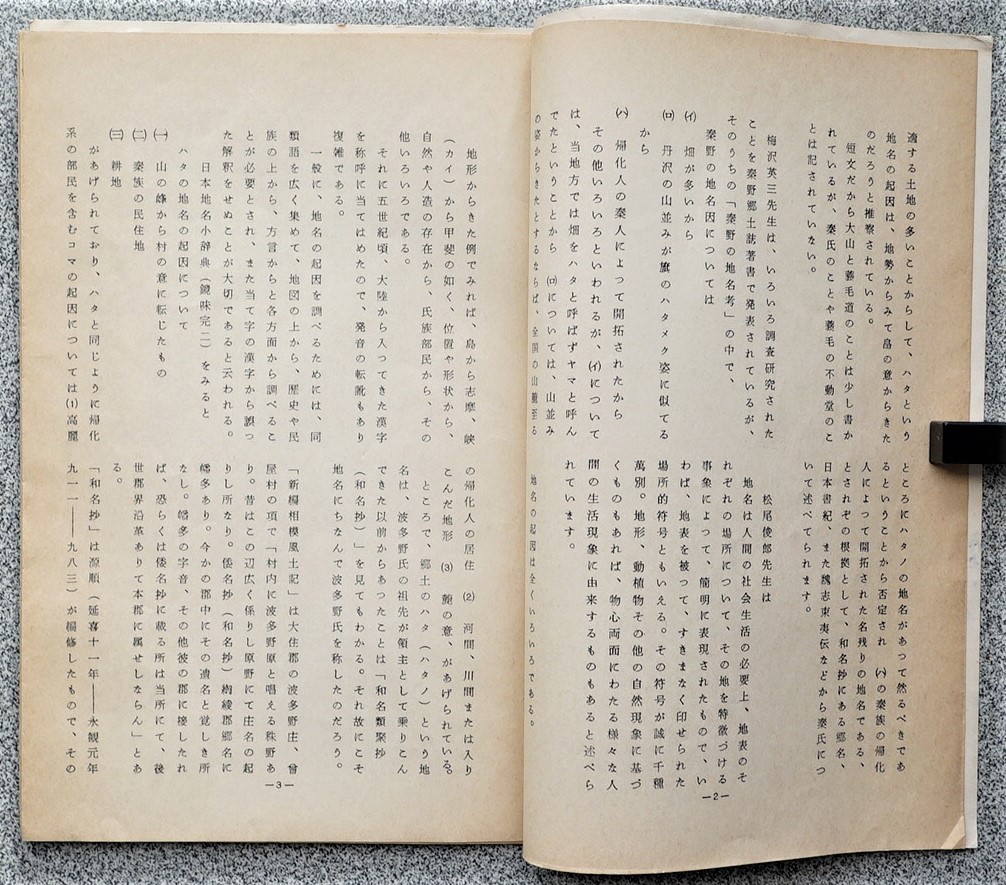 適する土地の多いことからして、ハタという
地名の起因は、地勢からみて畠の意からきた
のだろうと推察されている。
短文だから大山と蓑毛道のことは少し書か
れているが、秦氏のことや蓑毛の不動堂のこ
とは記されていない。
梅沢英三先生は、いろいろ調査研究された
ことを秦野郷土誌著書で発表されているが、
そのうちの「秦野の地名考」の中で、
秦野の地名因については
(イ) 畑が多いから
(ロ) 丹沢の山並みが旗のハタメク姿に似てる
から
(ハ) 帰化人の秦人によって開拓されたから
その他いろいろといわれるが、(イ)について
は、当地方では畑をハタと呼ばずヤマと呼ん
でたということから (ロ)については、山並み
の姿からきたとするならば、全国の山麓至る
ところにハタノの地名があつて然るべきであ
るということから否定され (ハ)の秦族の帰化
人によって開拓された名残りの地名である、
とされその根拠として、和名抄にある郷名、
日本書紀、また魏志東夷伝などから秦氏につ
いて述べてられます。
松尾俊郎先生は
地名は人間の社会生活の必要上、地表のそ
れぞれの場所について、その地を特徴づける
事象によって、簡明に表現されたもので、い
わば、地表を被って、すきまなく印せられた
場所的符号ともいえる。その符号が誠に千種
万別。地形、動植物その他の自然現象に基づ
くものもあれば、物心両面にわたる様々な人
間の生活現象に由来するものもあると述べら
れています。
地名の起因は全くいろいろである。
—2—
地形からきた例でみれば、島から志摩、峡
(カイ)から甲斐の如く、位置や形状から、
自然や人造の存在から、氏族部民から、その
他いろいろである。
それに五世紀頃、大陸から入ってきた漢字
を称呼に当てはめたので、発音の転訛もあり
複雑である。
一般に、地名の起因を調べるためには、同
類語を広く集めて、地図の上から、歴史や民
族の上から、方言からと各方面から調べるこ
とが必要とされ、また当て字の漢字から誤っ
た解釈をせぬことが大切であると云われる。
日本地名小辞典(鏡味完二)をみると
ハタの地名の起因について
㈠ 山の峰から村の意に転じたもの
㈡ 秦族の民住地
㈢ 耕地
があげられており、ハタと同じように帰化
系の部民を含むコマの起因については(1)高麗
の帰化人の居住 (2) 河間、川間または入り
こんだ地形 (3) 駒の意、があげられている。
ところで、郷土のハタ(ハタノ)という地
名は、波多野氏の祖先が領主として乗りこん
できた以前からあったことは「和名類聚抄
(和名抄)」を見てもわかる。それ故にこそ
地名にちなんで波多野氏を称したのだろう。
「新編相模風土記」は大住郡の波多野庄、曾
屋村の項で「村内に波多野原と唱える秣野あ
り。昔はこの辺広く係りし原野にて庄名の起
りし所なり。倭名抄(和名抄)綺綾郡郷名に
幡多あり。今かの郡中にその遺名と覚しき所
なし。幡多の字音、その他彼の郡に接したれ
ば、恐らくは倭名抄に載る所は当所にて、後
世郡界沿革ありて本郡に属せしならん」とあ
る。
「和名抄」は源順(延喜十一年——永観元年
九一一——九八三)が編修したもので、その
—3—